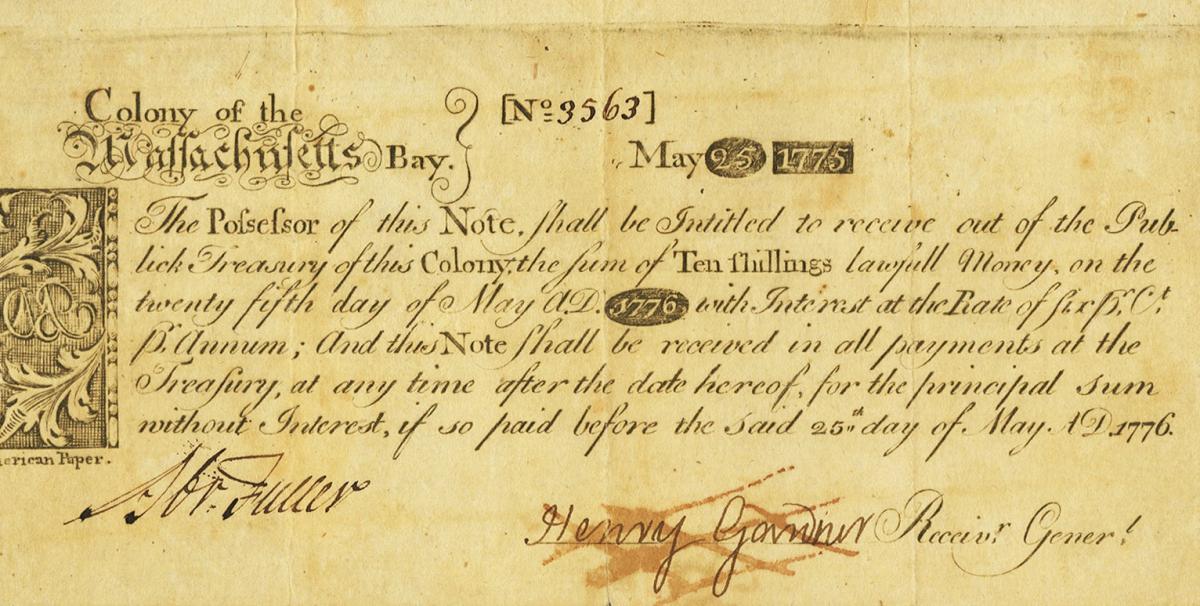 Colony of the
Maſſachuſetts Bay. } [No. 3563]
May 25 1775
The Poſseſsor of this Note, ſhall be Intitled to receive out of the Pub-
lick Treasury of this Colony, the ſum of Ten ſhillings lawfull Money, on the
twenty fifth day of May A.D. 1776 with Interest at the Rate of ſix Pr. Ct.
Pr. Annum; And this Note ſhall be received in all payments at the
Treaſury, at any time after the date hereof, for the principal sum
without Interest, if so paid before the said 25th day of May A D. 1776.
erican Paper.
Abr. Fuller
Henry Gardner Receivr. Generl.